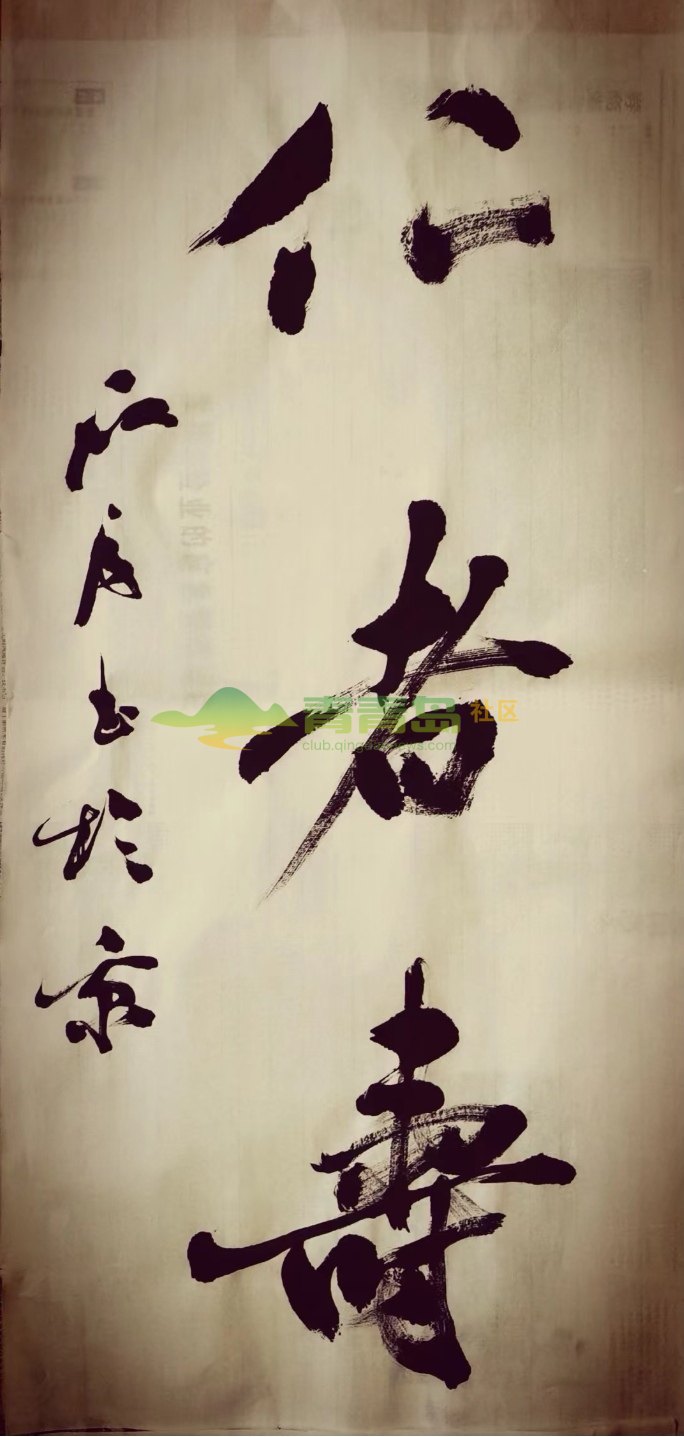 仁者壽
书於京
青青岛社区
club.qingdaonews.com